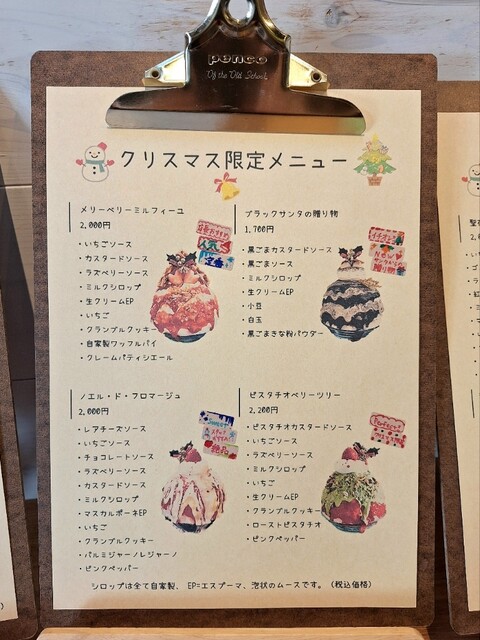 penco
Of the Old School.
クリスマス限定メニュー
メリーベリーミルフィーユ
2,000円
・いちごソース
・カスタードソース
・ラズベリーソース
・ミルクシロップ
・生クリームEP
・いちご
・クランブルクッキー
・自家製ワッフルパイ
・クレームパティシエール
ブラックサンタの贈り物
1,700円
イチオシ
NEW
・黒ごまカスタードソース
・黒ごまソース
・ミルクシロップ
・生クリームEP
・小豆
・白玉
・黒ごまきな粉パウダー
ノエル・ド・フロマージュ
2,000円
・レアチーズソース
・いちごソース
・チョコレートソース
・ラズベリーソース
・カスタードソース
・ミルクシロップ
・マスカルポーネEP
・いちご
・クランブルクッキー
・パルミジャーノレジャーノ
・ピンクペッパー
ピスタチオベリーツリー
2,200円
・ピスタチオカスタードソース
・いちごソース
・ラズベリーソース
・ミルクシロップ
・いちご
・生クリームEP
・クランブルクッキー
・ローストピスタチオ
・ピンクペッパー
シロップは全て自家製。 EP=エスプーマ、泡状のムースです。(税込価格)